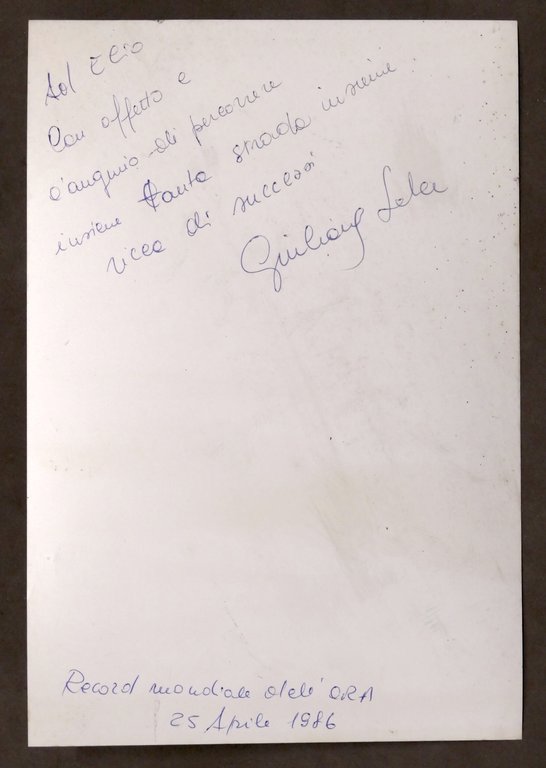 Ad Elio
Con affetto e
l'augurio di percorrere
insieme tanta strada insieme.
ricca di successi
Giuliana Salce
Record mondiale dell'ORA
25 Aprile 1986